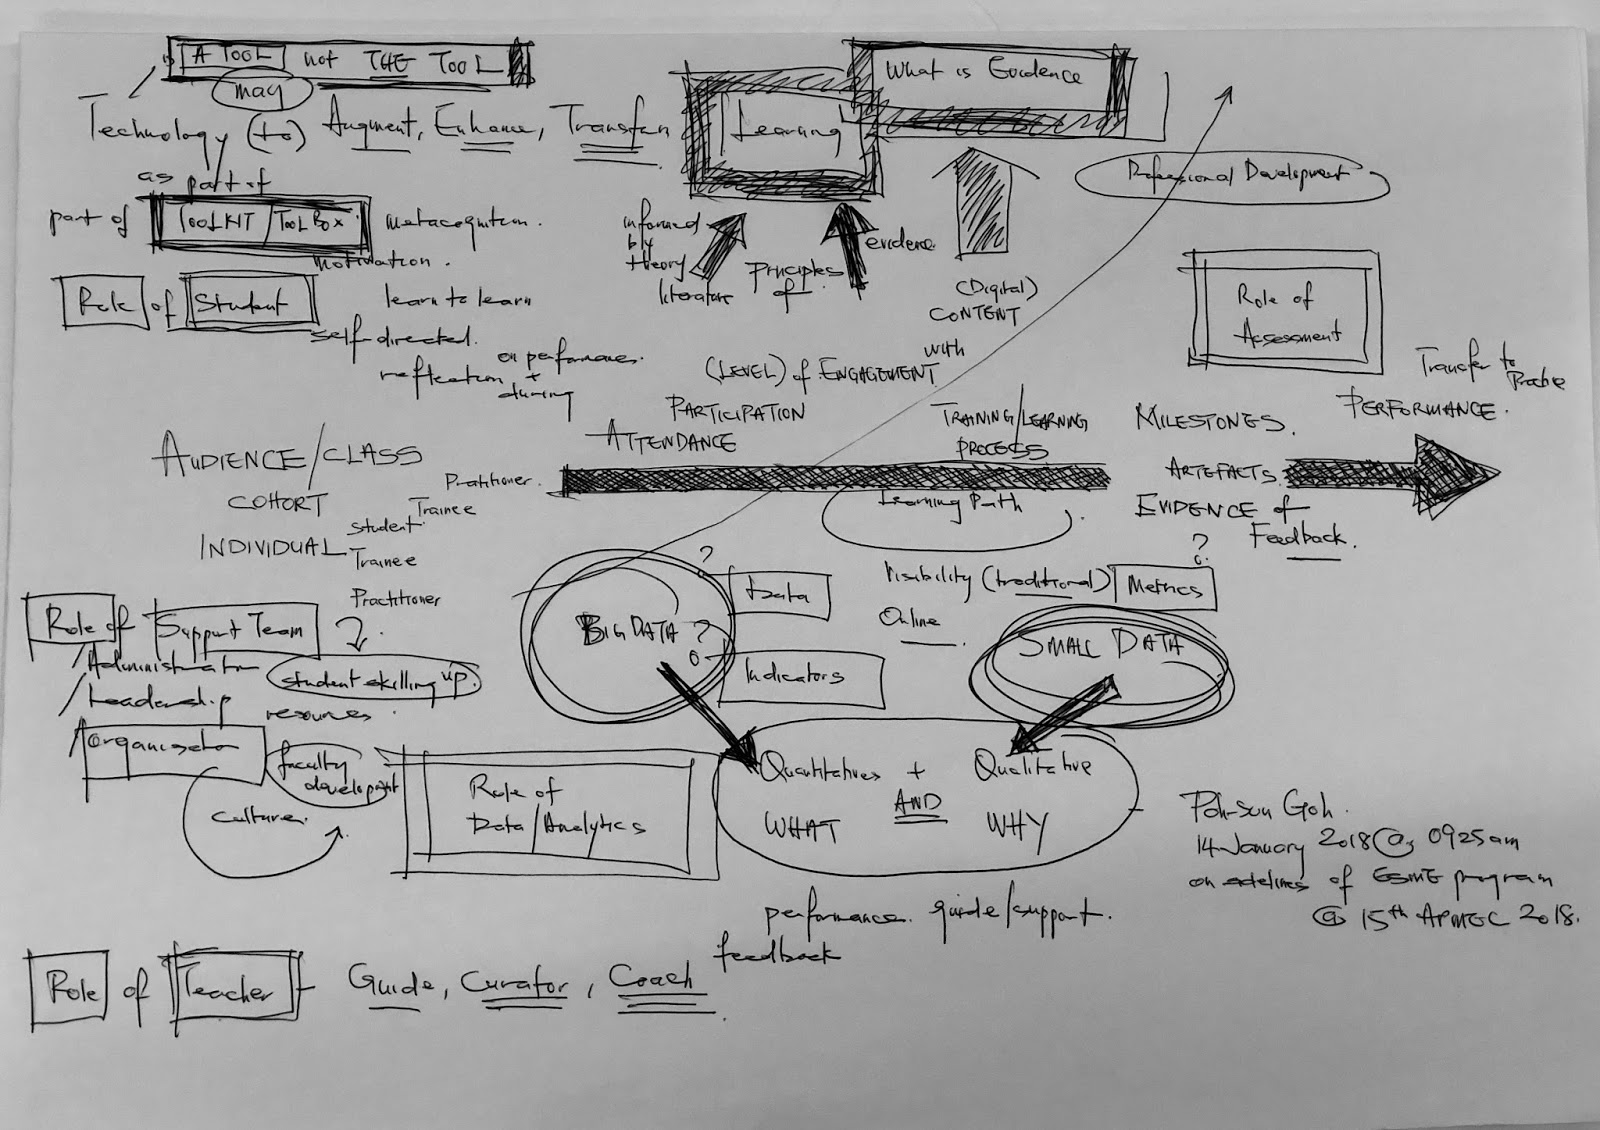 is A TOOL not THE TOOL
may
Technology (to) Augment, Enhance, Transform
Learning
What is Evidence
Professional Development
as part of
part of TOOLKIT / TOOLBOX
metacognition.
motivation.
Role of Student
learn to learn
self-directed.
reflection on performance.
+
during
informed
by
theory
literature
principles
of
evidence
(Digital)
CONTENT
with
(LEVEL) of ENGAGEMENT
PARTICIPATION
ATTENDANCE
Role of
Assessment
Transfer to
Practice
PERFORMANCE.
MILESTONES.
TRAINING/LEARNING
PROCESS
ARTEFACTS.
EVIDENCE of
Feedback.
Learning Path
AUDIENCE/CLASS
COHORT
INDIVIDUAL
Practitioner.
Trainee
Student
Trainee
Practitioner
Role of Support Team
/Administration
/Leadership
/Organisation
student skilling up.
resources.
faculty
development
culture.
BIG DATA
?
Data
?
Indicators
Visibility (traditional)
Online
?
Metrics
SMALL DATA
Quantitative + Qualitative
AND
WHAT WHY
Role of
Data/Analytics
performance. guide/support.
feedback
Poh-Sun Goh.
14 January 2018 @ 0925am
on sidelines of ESME program
@ 15th APMEC 2018.
Role of Teacher - Guide, Curator, Coach